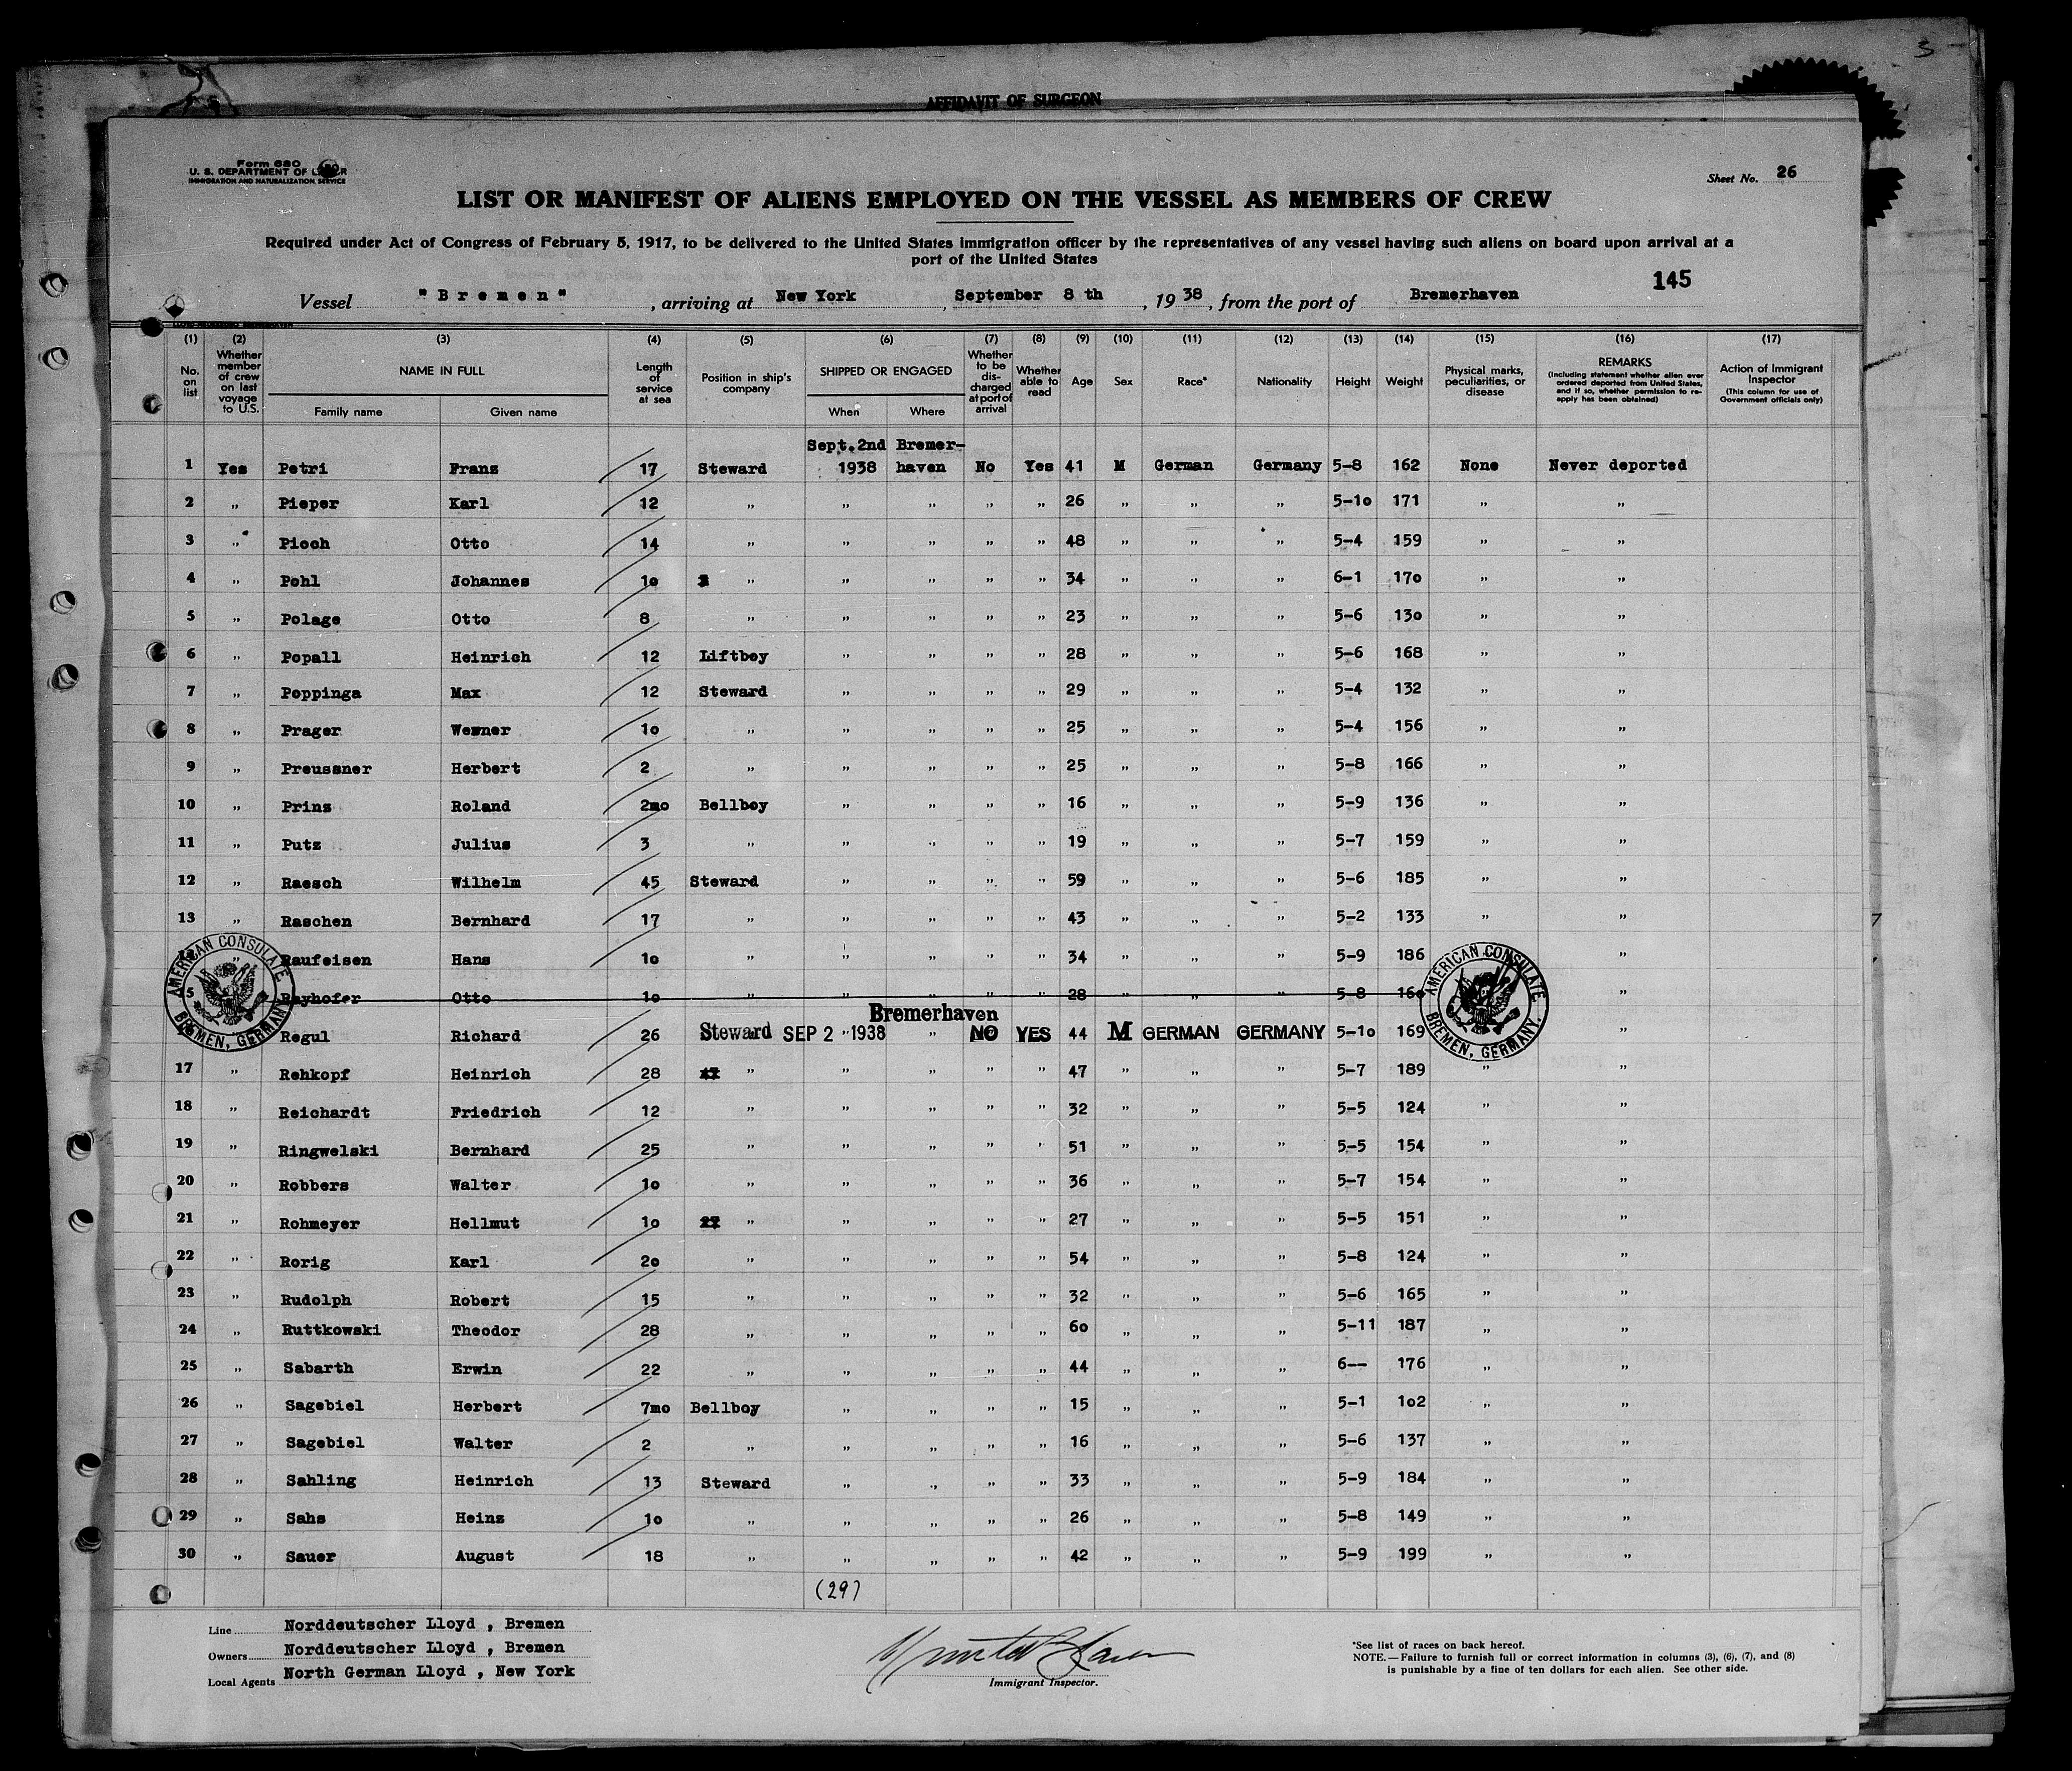 3
AFFIDAVIT OF SURGEON
Form 680
U. S. DEPARTMENT OF LABOR
IMMIGRATION AND NATURALIZATION SERVICE
Sheet No. 26
LIST OR MANIFEST OF ALIENS EMPLOYED ON THE VESSEL AS MEMBERS OF CREW
Required under Act of Congress of February 5, 1917, to be delivered to the United States immigration officer by the representatives of any vessel having such aliens on board upon arrival at a
port of the United States
145
Vessel "Bremen", arriving at New York, September 8 th, 1938, from the port of Bremerhaven
(1) (2) (3) (4) (5) (6) (7) (8) (9) (10) (11) (12) (13) (14) (15) (16) (17)
No. on list
Whether member of crew on last voyage to U.S.
NAME IN FULL
Family name Given name
Length of service at sea
Position in ship's company
SHIPPED OR ENGAGED
When Where
Whether to be discharged at port of arrival
Whether able to read
Age Sex Race* Nationality Height Weight
Physical marks, peculiarities, or disease
REMARKS
(Including statement whether alien ever ordered deported from United States, and if so, whether permission to re-apply has been obtained)
Action of Immigrant Inspector
(This column for use of Government officials only)
Sept.2nd Bremer-
1 Yes Petri Franz 17 Steward 1938 haven No Yes 41 M German Germany 5-8 162 None Never deported
2 " Pieper Karl 12 " " " " " 26 " " " 5-10 171 " "
3 " Pioch Otto 14 " " " " " 48 " " " 5-4 159 " "
4 " Pohl Johannes 10 " " " " " 34 " " " 6-1 170 " "
5 " Polage Otto 8 " " " " " 23 " " " 5-6 130 " "
6 " Popall Heinrich 12 Liftboy " " " " 28 " " " 5-6 168 " "
7 " Poppinga Max 12 Steward " " " " 29 " " " 5-4 132 " "
8 " Prager Werner 10 " " " " " 25 " " " 5-4 156 " "
9 " Preussner Herbert 2 " " " " " 25 " " " 5-8 166 " "
10 " Prinz Roland 2mo Bellboy " " " " 16 " " " 5-9 136 " "
11 " Putz Julius 3 " " " " " 19 " " " 5-7 159 " "
12 " Raesch Wilhelm 45 Steward " " " " 59 " " " 5-6 185 " "
13 " Raschen Bernhard 17 " " " " " 43 " " " 5-2 133 " "
" Raufeisen Hans 10 " " " " " 34 " " " 5-9 186 "
5 Rayhofer Otto 10 " " " " " 28 " " " 5-8 160 "
Bremerhaven
Regul Richard 26 Steward SEP 2 " 1938 " NO YES 44 M GERMAN GERMANY 5-10 169 "
17 " Rehkopf Heinrich 28 " " " " " 47 " " " 5-7 189 " "
18 " Reichardt Friedrich 12 " " " " " 32 " " " 5-5 124 " "
19 " Ringwelski Bernhard 25 " " " " " 51 " " " 5-5 154 " "
20 " Robbers Walter 10 " " " " " 36 " " " 5-7 154 " "
21 " Rohmeyer Hellmut 10 " " " " " 27 " " " 5-5 151 " "
22 " Rorig Karl 20 " " " " " 54 " " " 5-8 124 " "
23 " Rudolph Robert 15 " " " " " 32 " " " 5-6 165 " "
24 " Ruttkowski Theodor 28 " " " " " 60 " " " 5-11 187 " "
25 " Sabarth Erwin 22 " " " " " 44 " " " 6-- 176 " "
26 " Sagebiel Herbert 7mo Bellboy " " " " 15 " " " 5-1 102 " "
27 " Sagebiel Walter 2 " " " " " 16 " " " 5-6 137 " "
28 " Sahling Heinrich 13 Steward " " " " 33 " " " 5-9 184 " "
29 " Sahs Heinz 10 " " " " " 26 " " " 5-8 149 " "
30 " Sauer August 18 " " " " " 42 " " " 5-9 199 " "
(29)
AMERICAN CONSULATE
BREMEN, GERMANY.
AMERICAN CONSULATE
BREMEN, GERMANY.
Line Norddeutscher Lloyd , Bremen
Owners Norddeutscher Lloyd , Bremen
Local Agents North German Lloyd , New York
Immigrant Inspector.
*See list of races on back hereof.
NOTE.—Failure to furnish full or correct information in columns (3), (6), (7), and (8)
is punishable by a fine of ten dollars for each alien. See other side.